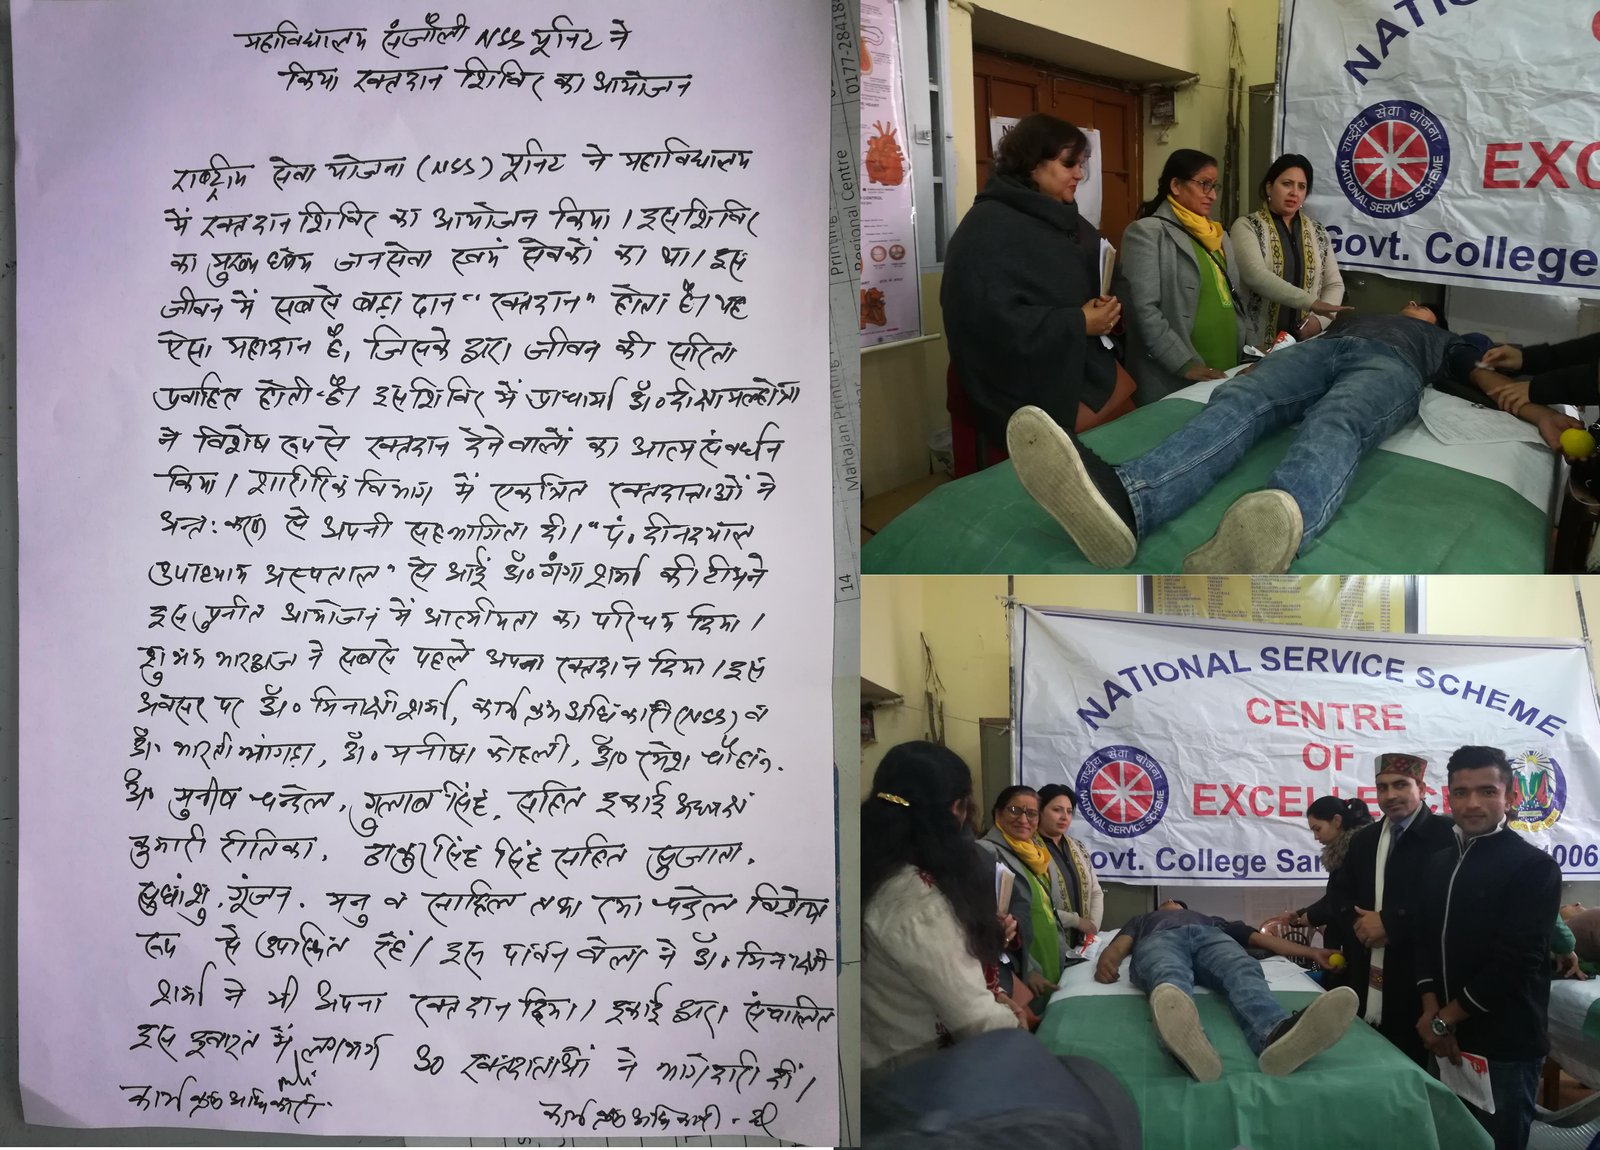 महाविद्यालय संजौली NSS यूनिट ने
किया रक्तदान शिविर का आयोजन
राष्ट्रीय सेवा योजना (NSS) यूनिट ने महाविद्यालय
में रक्तदान शिविर का आयोजन किया। इस शिविर
का मुख्य ध्येय जनसेवा स्वयं सेवकों का था। इस
जीवन में सबसे बड़ा दान "रक्तदान" होता है। यह
ऐसा महादान है, जिसके द्वारा जीवन की सरिता
प्रवाहित होती है। इस शिविर में प्राचार्या डॉ० दीक्षा मल्होत्रा
ने विशेष रूप से रक्तदान देने वालों का आत्म संवर्धन
किया। शारीरिक विभाग में एकत्रित रक्तदाताओं ने
अन्त:करण से अपनी सहभागिता दी। "पं. दीनदयाल
उपाध्याय अस्पताल" से आई डॉ० गंगा शर्मा की टीम ने
इस पुनीत आयोजन में आत्मीयता का परिचय दिया।
शुभम भारद्वाज ने सबसे पहले अपना रक्तदान दिया। इस
अवसर पर डॉ० मिनाक्षी शर्मा, कार्यक्रम अधिकारी (NSS) व
डॉ. भारती भांगड़ा, डॉ० मनीषा कोहली, डॉ० रमेश चौहान.
डॉ. मुनीष चन्देल, गुलाब सिंह, सहित इकाई अध्यक्ष
कुमारी रीतिका, ठाकुर सिंह सिंह सहित सुजाता,
सुधांशु, गूंजन, मनु व साहिल तथा रमा चन्देल विशेष
रूप से उपस्थित रहे। इस पावन बेला ने डॉ. मिनाक्षी
शर्मा ने भी अपना रक्तदान दिया। इकाई द्वारा संचालित
इस इबारत में लगभग 30 रक्तदाताओं ने भागेदारी दी।
कार्यक्रम अधिकारी.
कार्यक्रम अधिकारी
14 Mahajan Printing
Printing
Regional Centre
0177-2841
NATIO
राष्ट्रीय सेवा योजना
NATIONAL SERVICE SCHEME
EXC
Govt. College
NATIONAL SERVICE SCHEME
CENTRE
OF
EXCELLENC
राष्ट्रीय सेवा योजना
NATIONAL SERVICE SCHEME
ovt. College San
006